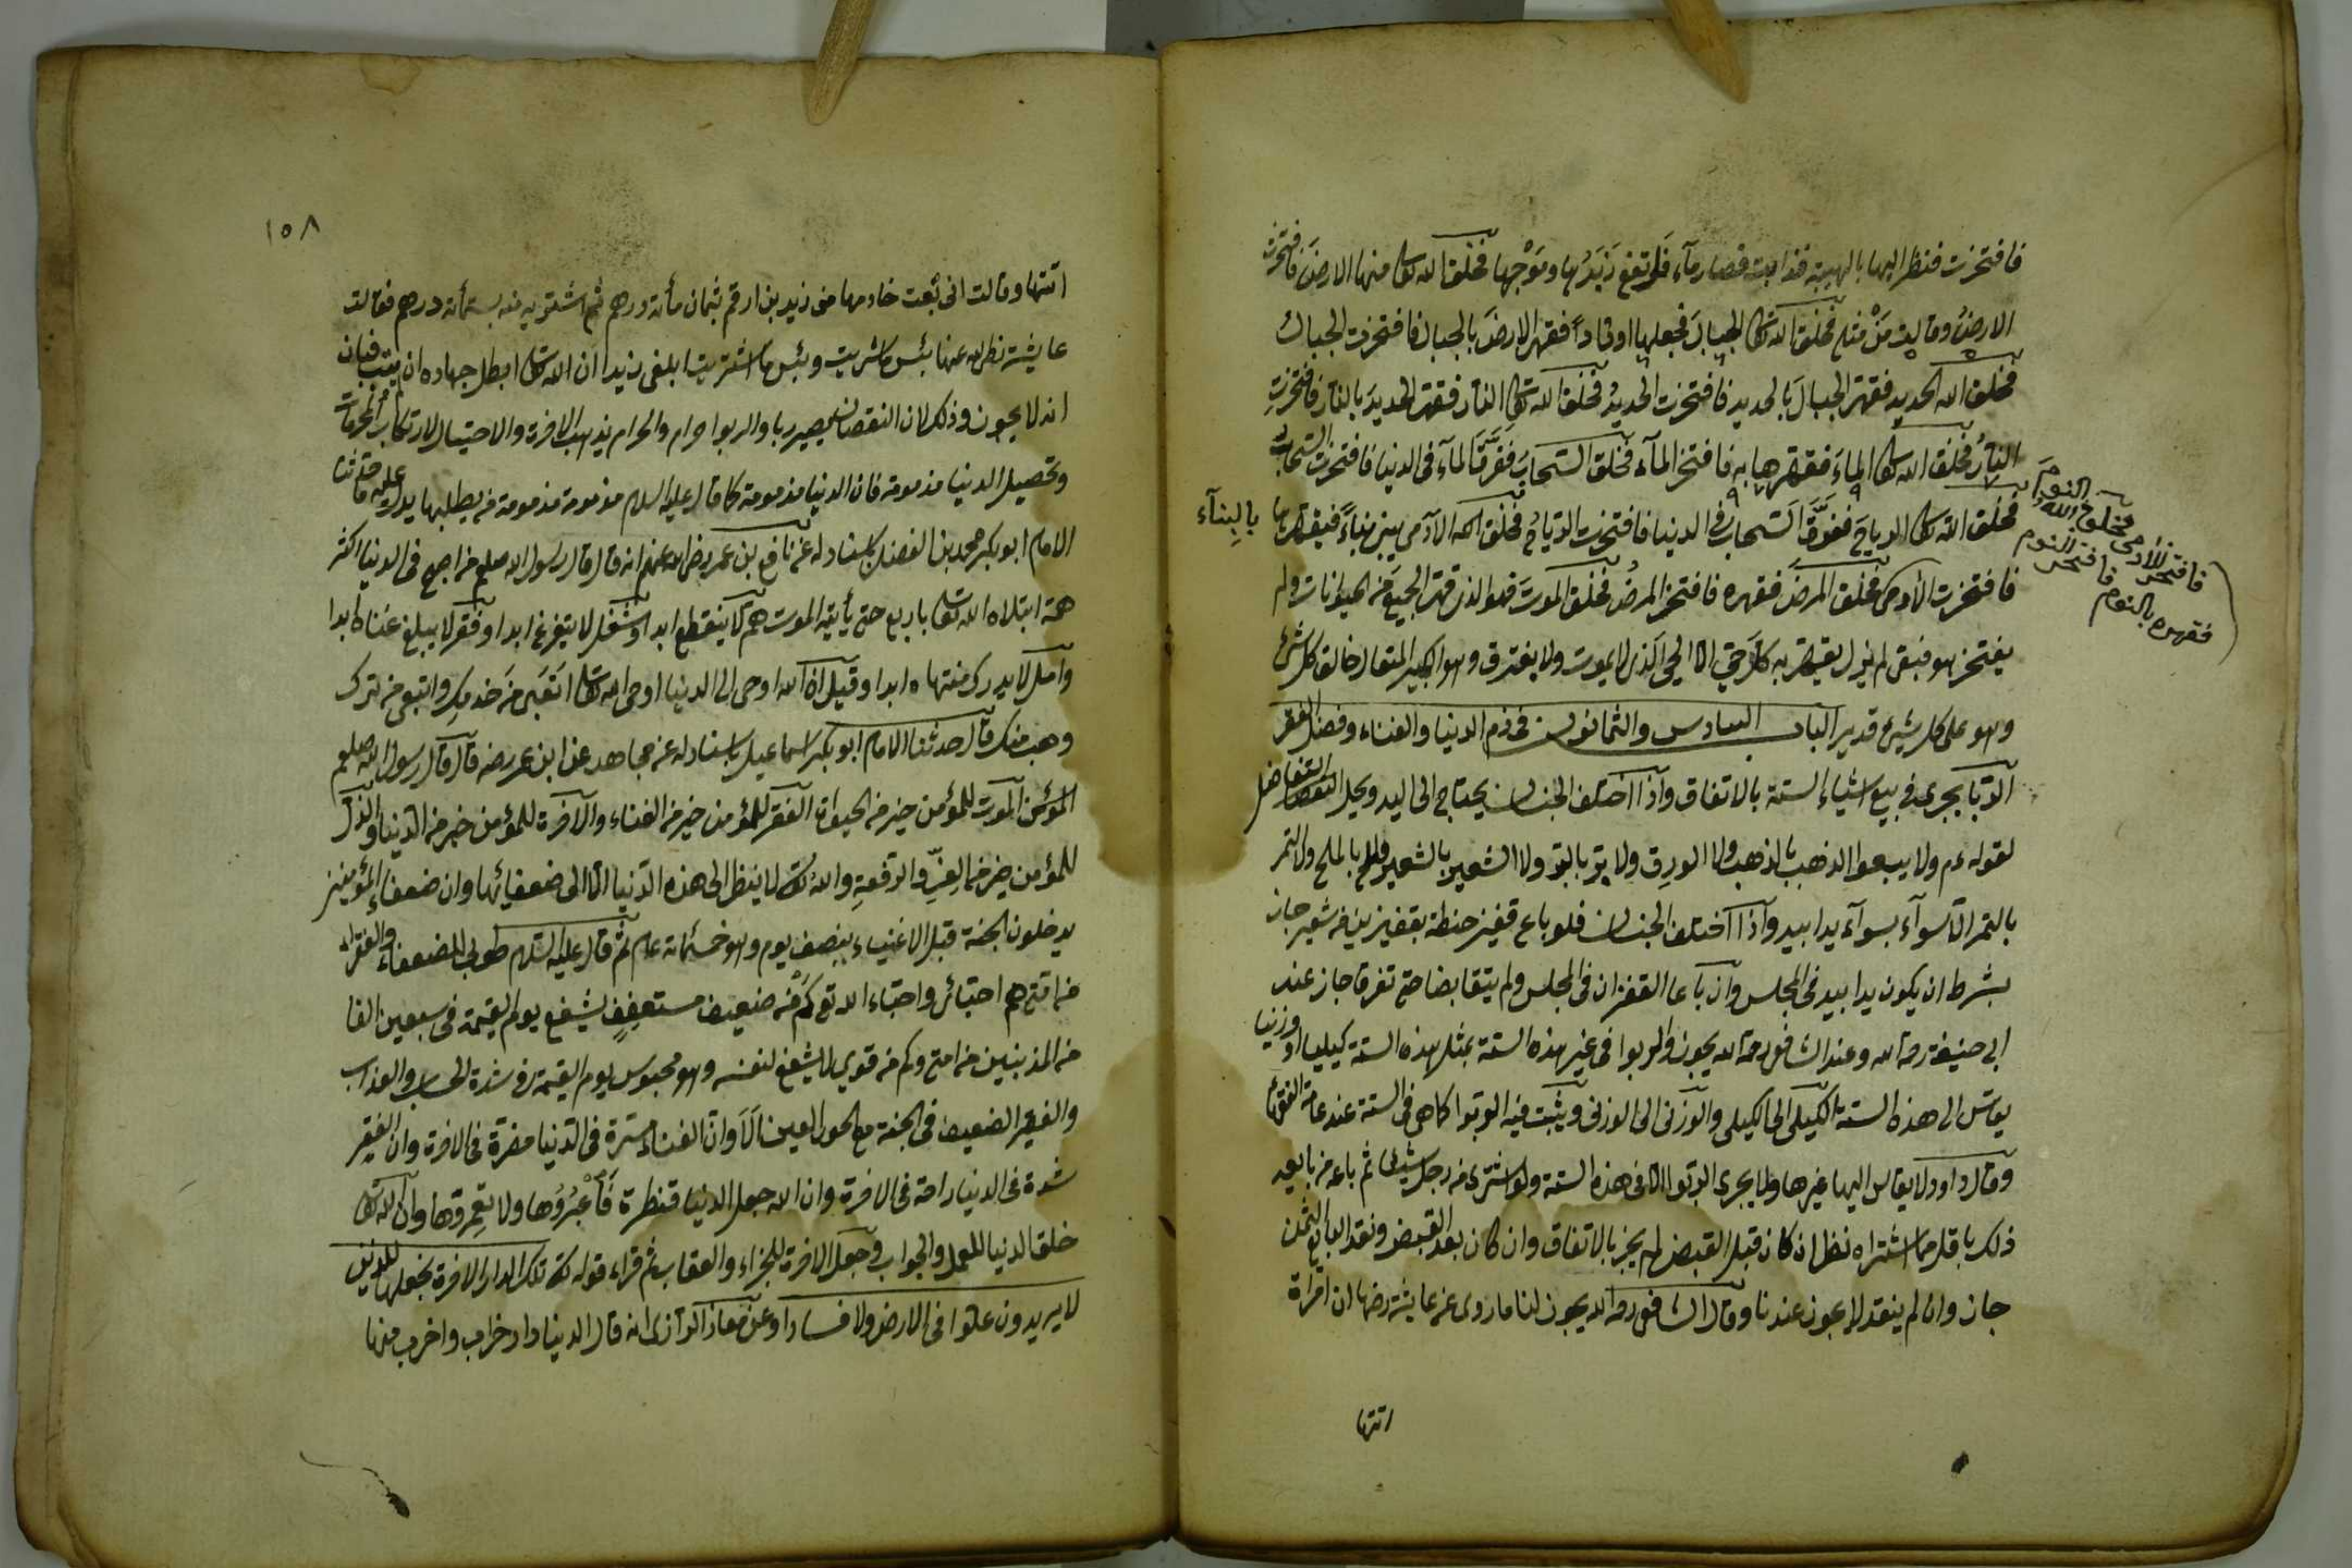 فافتخرت فنظر اليها بالهيبة فذابت فصار مآء فلم تقع زبدها وموجها فخلق الله تعالى منها الارض فافتخرت
الارض وقالت من مثلي فخلق الله تعالى الجبال فجعلها اوتاداً فقهر الارض بالجبال فافتخرت الجبال
فخلق الله الحديد فقهر الجبال بالحديد فافتخرت الحديد فخلق الله تعالى النار فقهر الحديد بالنار فافتخرت
النار فخلق الله تعالى الماء فقهرها به فافتخر المآء فخلق السحاب ففرق المآء في الدنيا فافتخرت السحاب
فخلق الله تعالى الرياح ففرق السحاب في الدنيا فافتخرت الرياح فخلق الله الآدمي يبني بناءً فيقهرها بالبنآء
فافتخرت الآدمي فخلق المرض فقهره فافتخر المرض فخلق الموت فهو الذي قهر الجميع من الحيوانات ولم
يفتخر هو فبقي لم يزل يقهر به كل حي الا الحي الذي لا يموت ولا يفترق وهو الكبير المتعال خالق كل شئ
وهو على كل شيئ قدير الباب السادس والثمانون في ذم الدنيا والغناء وفضل الفقر
الربا يجري في بيع اشياء الستة بالاتفاق واذا اختلف الجنسان يحتاج الى اليد ويحل التفاضل
لقوله عم ولا يبيعوا الذهب بالذهب ولا الورق ولا بر بالبر ولا الشعير بالشعير والملح بالملح ولا التمر
بالتمر الا سوآء بسوآء يدا بيد واذا اختلف الجنسان فلو باع قفيز حنطة بقفيزين من شعير جاز
بشرط ان يكون يدا بيد في المجلس وان باعا القفزان في المجلس ولم يتقابضا حتى تفرقا جاز عند
ابي حنيفة رحمة الله وعند الشافعي رحمة الله يجوز والربوا في غير هذه الستة بمثل هذه الستة كيليا او وزنيا
يقاس الى هذه الستة الكيلي الى الكيلي والوزني الى الوزني ويثبت فيه الربوا كما هي في الستة عند عامة الفقهآء
وقال داود لا يقاس اليها غيرها ولا يجري الربوا الا في هذه الستة ولو اشترى من رجل شيئا ثم باعه من بايعه
ذلك باقل مما اشتراه نظر ان كان قبل القبض لم يجز بالاتفاق وان كان بعد القبض ونقد البايع الثمن
جاز وان لم ينقد لا يجوز عندنا وقال الشافعي رحمه الله يجوز لنا ما روى عن عايشة رضها ان امرأة
اتتها
فافتخر الآدمي فخلق الله النوم
فقهره بالنوم فافتخر النوم
١٥٨
اتتها وقالت اني بعت خادمها من زيد بن ارقم بثمان مأته درهم ثم اشتريه منه بستمأته درهم فقالت
عايشة رضي الله عنها بئس ما شريت وبئس ما اشتريت ابلغي زيدا ان الله تعالى ابطل جهاده ان لم يتب فبان
انه لا يجوز وذلك لان النقصان يصير ربا والربوا حرام والحرام يذهب الاخرة والاحتيال لارتكاب المحرمات
وتحصيل الدنيا مذمومة فان الدنيا مذمومة كما قال عليه السلام مذمومة مذمومة من يطلبها يدل عليه حدثنا
الامام ابو بكر محمد بن الفضل باسناد له عن نافع بن عمر رضي الله عنهم انه قال قال رسول الله صلعم من اصبح في الدنيا اكثر
همه ابتلاه الله تعالى باربع حتى يأتيه الموت هم لا ينقطع ابدا وشغل لا يتفرغ ابدا وفقر لا يبلغ غناه ابدا
وامل لا يدرك منتهاه ابدا وقيل ان الله اوحى الى الدنيا اوحى الله تعالى اتعبي من خدمك واتبعي من ترك
وهب منك قال حدثنا الامام ابو بكر اسماعيل باسناد له عن مجاهد عن ابن عمر رضه قال قال رسول الله صلعم
المؤمن الموت للمؤمن خير من الحيوات الفقر للمؤمن خير من الغناء والآخرة للمؤمن خير من الدنيا والذل
للمؤمن خير من العز والرفعة والله تعالى لا ينظر الى هذه الدنيا الا الى ضعفائها وان ضعفاء المؤمنين
يدخلون الجنة قبل الاغنياء بنصف يوم وهو خمسمائة عام ثم قال عليه السلام طوبى للضعفاء والفقراء
من امتي هم احبائي واحباء الله تع كم من ضعيف مستعفف يشفع يوم القيمة في سبعين الفا
من المذنبين من امتي وكم من قوي لا يشفع لنفسه وهو محبوس يوم القيمة في شدة الحساب والعذاب
والفقير الضعيف في الجنة مع الحور العين الا وان الغناء مسترة في الدنيا مضرة في الاخرة وان الفقر
شدة في الدنيا راحة في الاخرة وان الله جعل الدنيا قنطرة فاعبروها ولا تعمروها وان الله تعالى
خلق الدنيا للعمل والجواب وجعل الاخرة للجزاء والعقاب ثم قراء قوله تع تلك الدار الاخرة نجعلها للذين
لا يريدون علوا في الارض ولا فسادا وعن معاذ الرازي انه قال الدنيا دار خراب واخرب منها